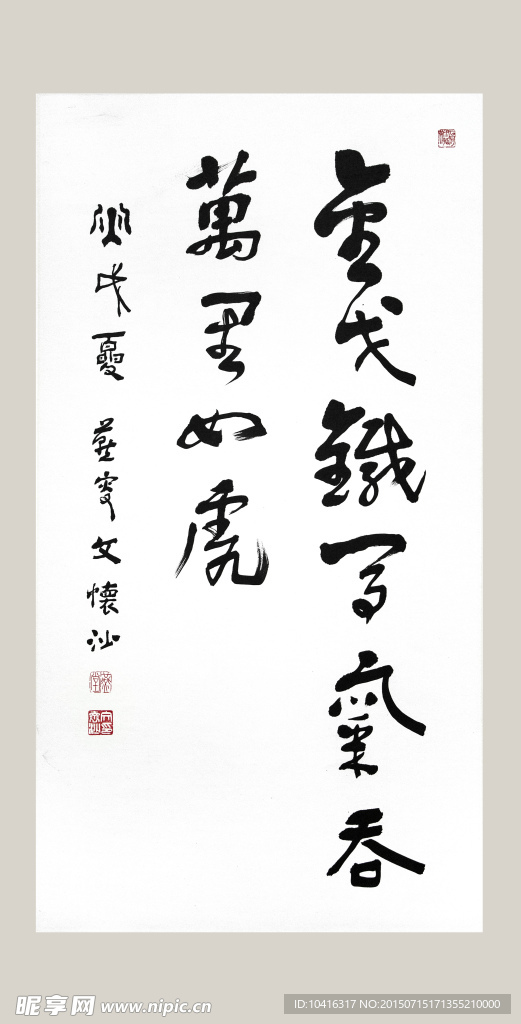 金戈鐵馬氣吞
萬里如虎
戊夏 燕叟文懷沙
昵享网 www.nipic.cn
ID:10416317 NO:20150715171355210000